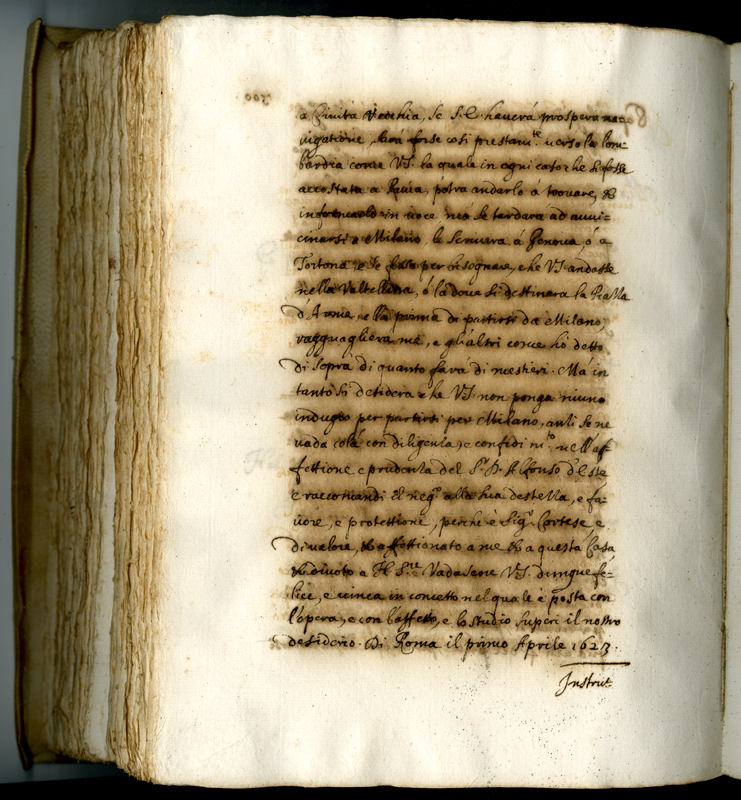 a Civita Vecchia, se S.E. haverá prospera na=
vigatione, sará forse così prestam.te verso la lom=
bardia come VS. la quale in ogni caso che si fosse
accostata a Pavia, potrá andarlo á trovare, &
informarlo in voce mà se tardara ad avvi=
cinarsi a Milano, le scriverá á Genova, ó a
Tortona, e se fusse per bisognare, che VS. andasse
nella Valtellina, ó là dove si destinara la Piazza
d'Armi, ella prima di partirsi da Milano,
ragguagliera me, e gl'altri come hó detto
di sopra di quanto fará di mestieri. Má in
tanto si desidera che VS. non ponga niuno
indugio per partirsi per Milano, anzi se ne
vada colá con diligenza, e confidi m.to nell'af=
fettione e prudenza del S.r D. Alfonso d'Este
e raccomandi il neg.o alla sua destrezza, e fa=
vore, e protettione, perche è Sig.r Cortese, e
di valore, & affettionato a me & a questa Casa
& divoto a N. S.re Vadasene VS. dunque fe=
lice, e vinca in concetto nel quale è posta con
l'opera, e con l'affetto, e lo studio superi il nostro
desiderio. Di Roma il primo Aprile 1623.
Instrut.